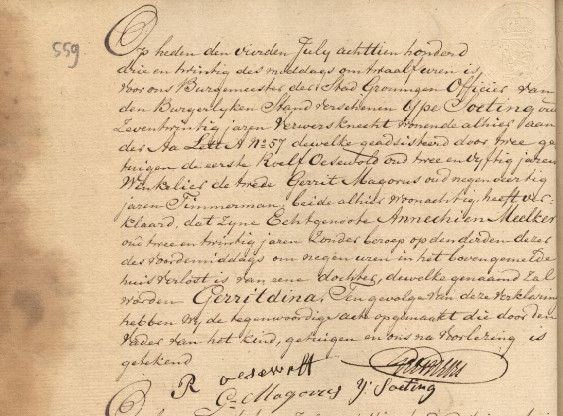 559
Op heden den vierden July achttien honderd
drie en twintig des middags om twaalf uren is
voor ons Burgemeester der Stad Groningen Officier van
den Burgerlyken Stand verschenen Ype Soeting oud
Zeventwintig jaren Verwersknecht wonende alhier aan
der Aa Lett A No 57 dewelke geadsisteerd door twee ge
tuigen de eerste Roelf Oesewold oud twee en vyftig jaren
Winkelier de twede Gerrit Magorus oud negen veertig
jaren Timmerman, beide alhier woonachtig heeft ver-
klaard, dat Zyne Echtgenoote Annechien Meelker
oud twee en twintig jaren Zonder beroep op den derden dezer
des voordemiddags om negen uren in het bovengemelde
huis verlost is van eene dochter, dewelke genaamd zal
worden Gerritdina, Ten gevolge van deze verklaring
hebben wy de tegenwoordige acte opgemaakt die door den
Vader van het kind, getuigen en ons na voorlezing is
getekend
R oesewolt
G: Magorus Y: Soeting